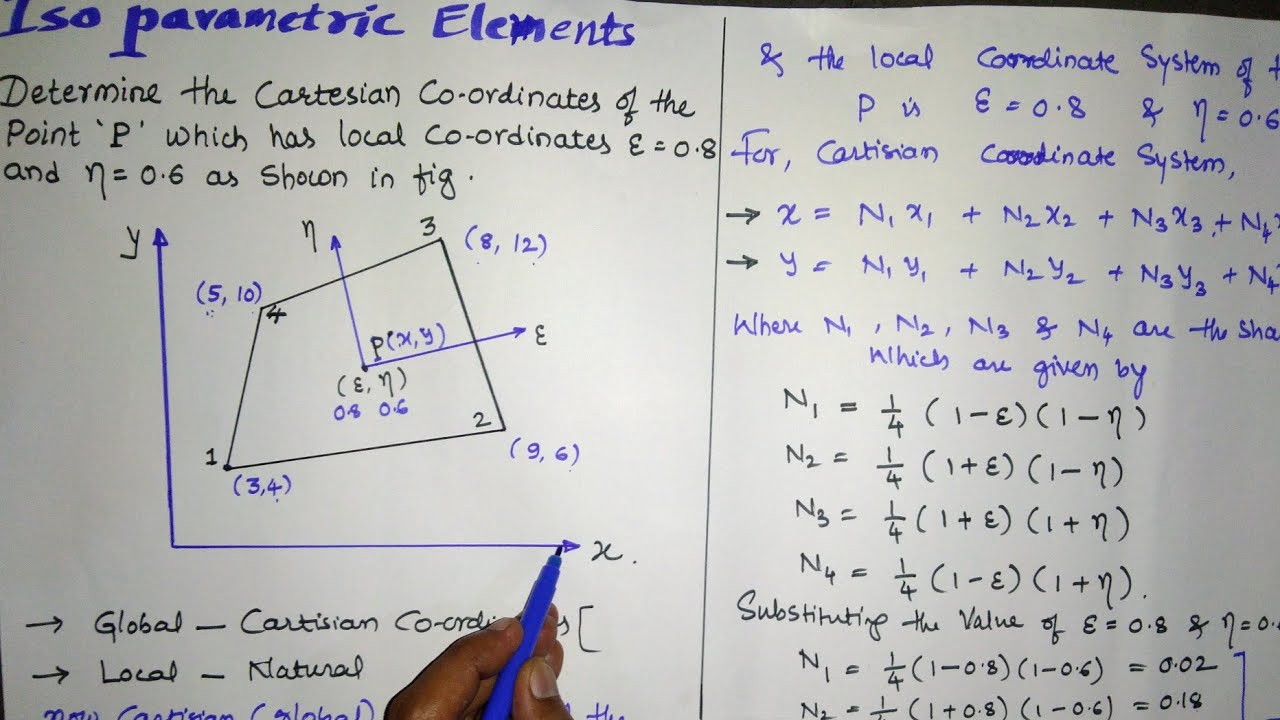 Iso parametric Elements
Determine the Cartesian Co-ordinates of the
Point 'P' which has local co-ordinates ε = 0.8
and η = 0.6 as Shown in fig.
y
η
3
(8, 12)
(5, 10)
4
P(x, y)
ε
(ε, η)
0.8 0.6
2
1
(9, 6)
(3,4)
x.
→ Global – Cartisian Co-ordi
→ Local – Natural
now Cartisian (global) the
& the local Coordinate System of
P is ε = 0.8 & η = 0.6
For, Cartisian Coordinate System,
→ x = N₁x₁ + N₂x₂ + N₃x₃ + N₄
→ y = N₁y₁ + N₂y₂ + N₃y₃ + N₄
Where N₁, N₂, N₃ & N₄ are the sha
Which are given by
N₁ = 1/4 (1-ε)(1-η)
N₂ = 1/4 (1+ε)(1-η)
N₃ = 1/4 (1+ε)(1+η)
N₄ = 1/4 (1-ε)(1+η).
Substituting the Value of ε = 0.8 & η = 0.
N₁ = 1/4 (1-0.8)(1-0.6) = 0.02
N₂ = 1/4 (1+0.8)(1-0.6) = 0.18